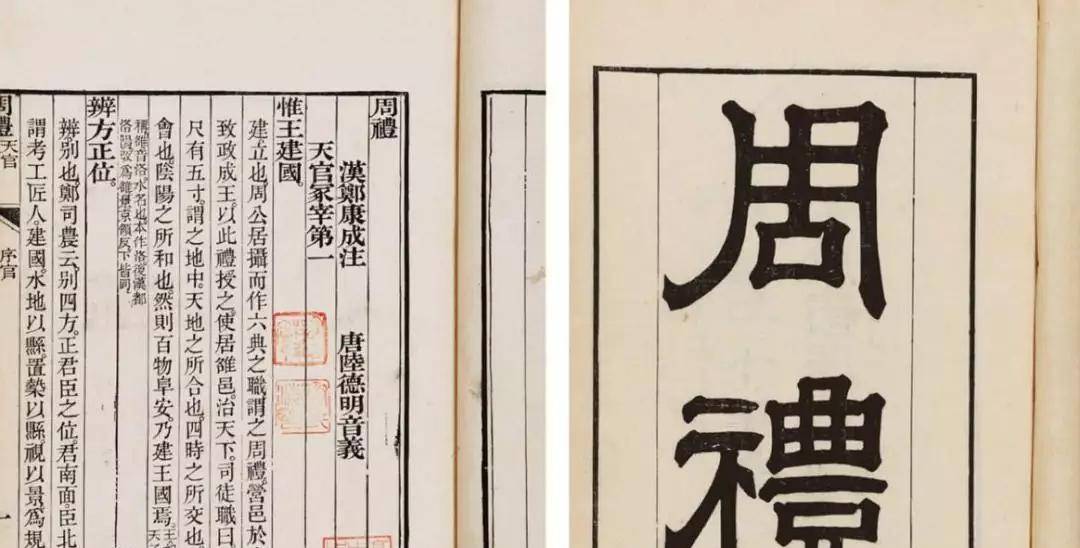 周禮
周禮
漢鄭康成注 唐陸德明音義
天官冢宰第一
惟王建國。
建立也。周公居攝而作六典之職謂之周禮。營邑於
致政成王。以此禮授之。使居雒邑。治天下。司徒職曰
尺有五寸。謂之地中。天地之所合也。四時之所交也
會也。陰陽之所和也。然則百物阜安。乃建王國焉。
雒音洛水名也本作洛後漢都
洛陽改爲雒景京領反下皆同
辨方正位。
辨別也。鄭司農云。別四方。正君臣之位。君南面。臣北
謂考工。匠人。建國。水地以縣。置槷以縣。視以景。爲規
周禮 天官 序官 一